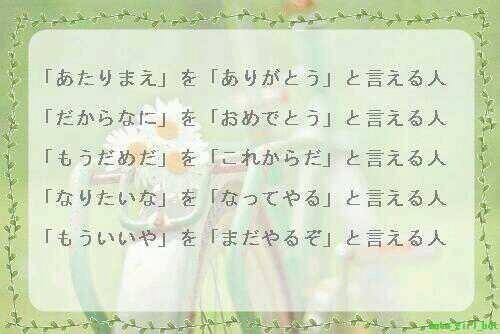 「あたりまえ」を「ありがとう」と言える人
「だからなに」を「おめでとう」と言える人
「もうだめだ」を「これからだ」と言える人
「なりたいな」を「なってやる」と言える人
「もういいや」を「まだやるぞ」と言える人